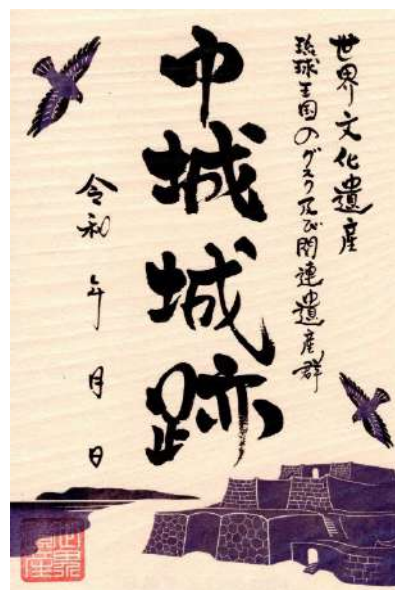 世界文化遺産
琉球王国のグスク及び関連遺産群
中城城跡
令和 年 月 日
世界
遺産